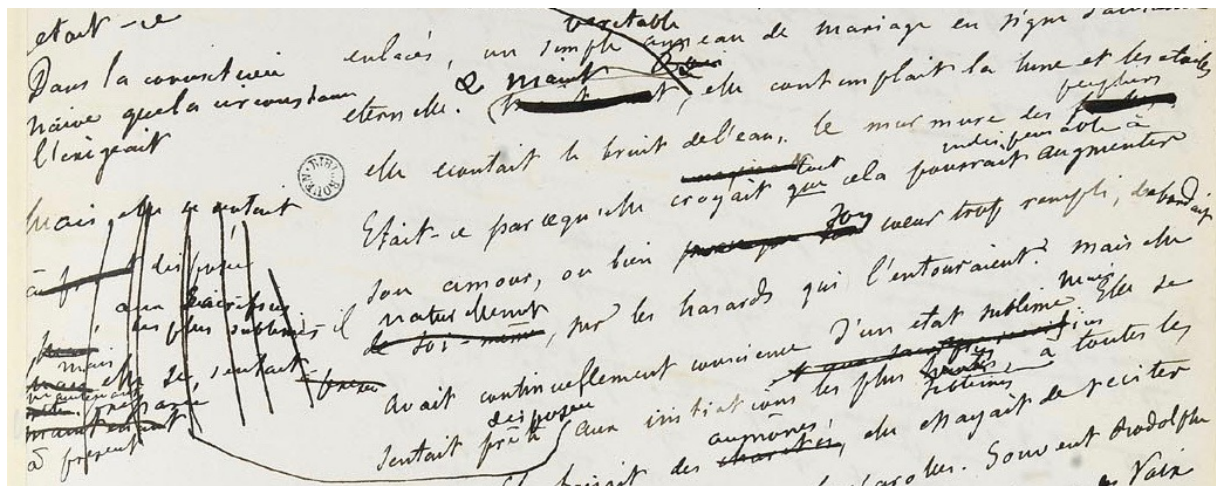 etait-ce
Dans la conviction
naïve que la circonstance
l'exigeait
Mais elle se sentait
disposée
aux sacrifices
les plus sublimes
mais
elle se sentait
maintenant
préparée
maintenant
à présent
véritable
enlacés, un simple anneau de mariage en signe d'alliance
& maint soir
eternelle. elle contemplait la lune et les etoiles
peupliers
elle ecoutait le bruit de l'eau, le murmure des
indispensable à
tout
Etait-ce parcequ'elle croyait que cela pourrait augmenter
son
son amour, ou bien coeur trop rempli, debordait
naturellement
de soi-même, sur les hasards qui l'entouraient? mais elle
il
avait continuellement conscience d'un etat sublime mais Elle se
disposée
sentait prête aux initiations les plus sublimes, à toutes les
aumônes
des charités, elle essayait de reciter
Souvent Rodolphe
BIB. ROUEN